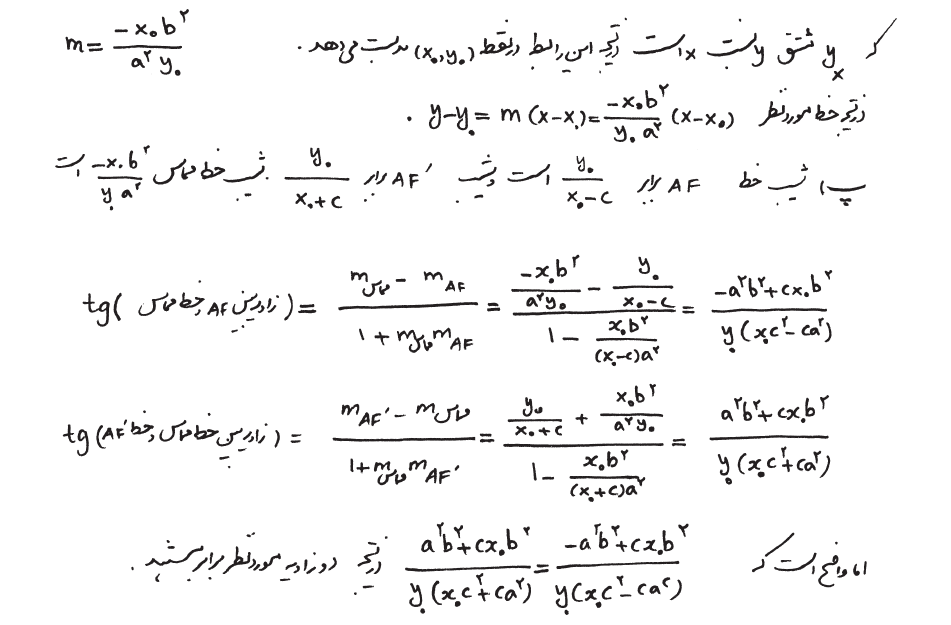 که y_x مشتق y نسبت x است در نتیجه این رابطه در نقطه (x₀,y₀) بدست می‌دهد. m = \frac{-x₀b^۲}{a^۲y₀}
در نتیجه خط مورد نظر y-y₀ = m(x-x₀) = \frac{-x₀b^۲}{y₀a^۲}(x-x₀).
شیب خط AF برابر \frac{y₀}{x₀-c} است و شیب AF' برابر \frac{y₀}{x₀+c} شیب خط مماس \frac{-x₀b^۲}{y₀a^۲} است
tg(زاویه بین AF و خط مماس) = \frac{m_{مماس} - m_{AF}}{۱ + m_{مماس}m_{AF}} = \frac{\frac{-x₀b^۲}{a^۲y₀} - \frac{y₀}{x₀-c}}{۱ - \frac{x₀b^۲}{(x₀-c)a^۲}} = \frac{-a^۲b^۲+cx₀b^۲}{y₀(x₀c^۲-ca^۲)}
tg(زاویه بین خط مماس و خط AF') = \frac{m_{AF'} - m_{مماس}}{۱+m_{مماس}m_{AF'}} = \frac{\frac{y₀}{x₀+c} + \frac{x₀b^۲}{a^۲y₀}}{۱ - \frac{x₀b^۲}{(x₀+c)a^۲}} = \frac{a^۲b^۲+cx₀b^۲}{y₀(x₀c^۲+ca^۲)}
اما واضح است که \frac{a^۲b^۲+cx₀b^۲}{y₀(x₀c^۲+ca^۲)} = \frac{-a^۲b^۲+cx₀b^۲}{y₀(x₀c^۲-ca^۲)} در نتیجه دو زاویه مورد نظر برابر هستند.